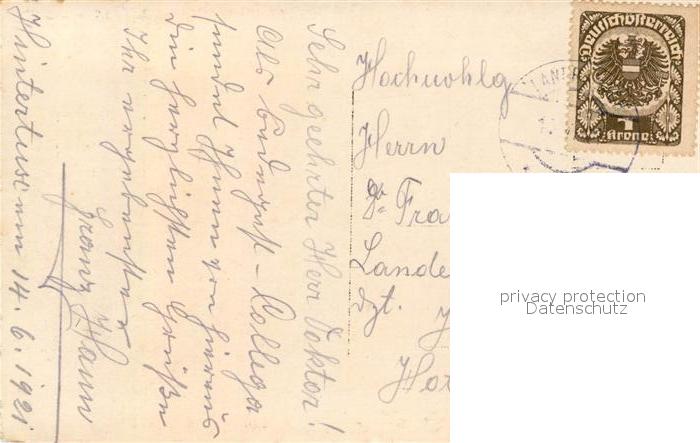 Hintertux am 14.6.1921
Sehr geehrter Herr Doktor!
Als Budapest-Kollege
sendet Ihnen von hieraus
die herzlichsten Grüße
Ihr ergebenster
Franz Hann
Hochwohlg.
Herrn
Dr Fra
Lande
dzt.
Deutschösterreich
1
Krone
privacy protection
Datenschutz